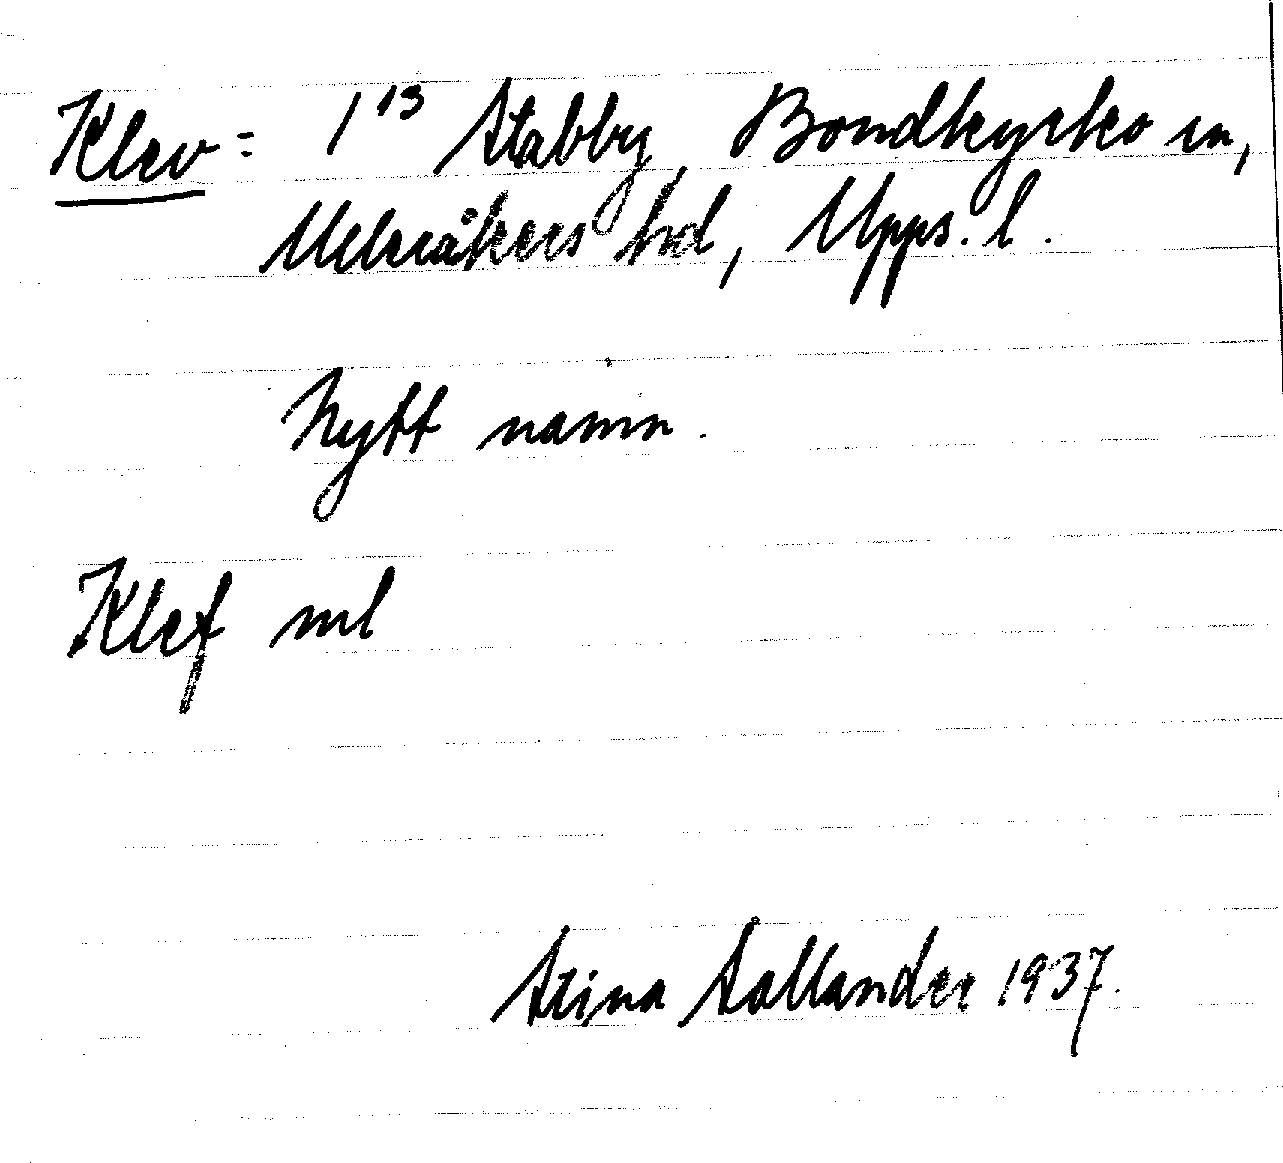 Klev = 1¹³ Stabby, Bondkyrko sn,
Ulleråkers hd, Upps. l.
Nytt namn.
Klef ml
Stina Sollander 1937.